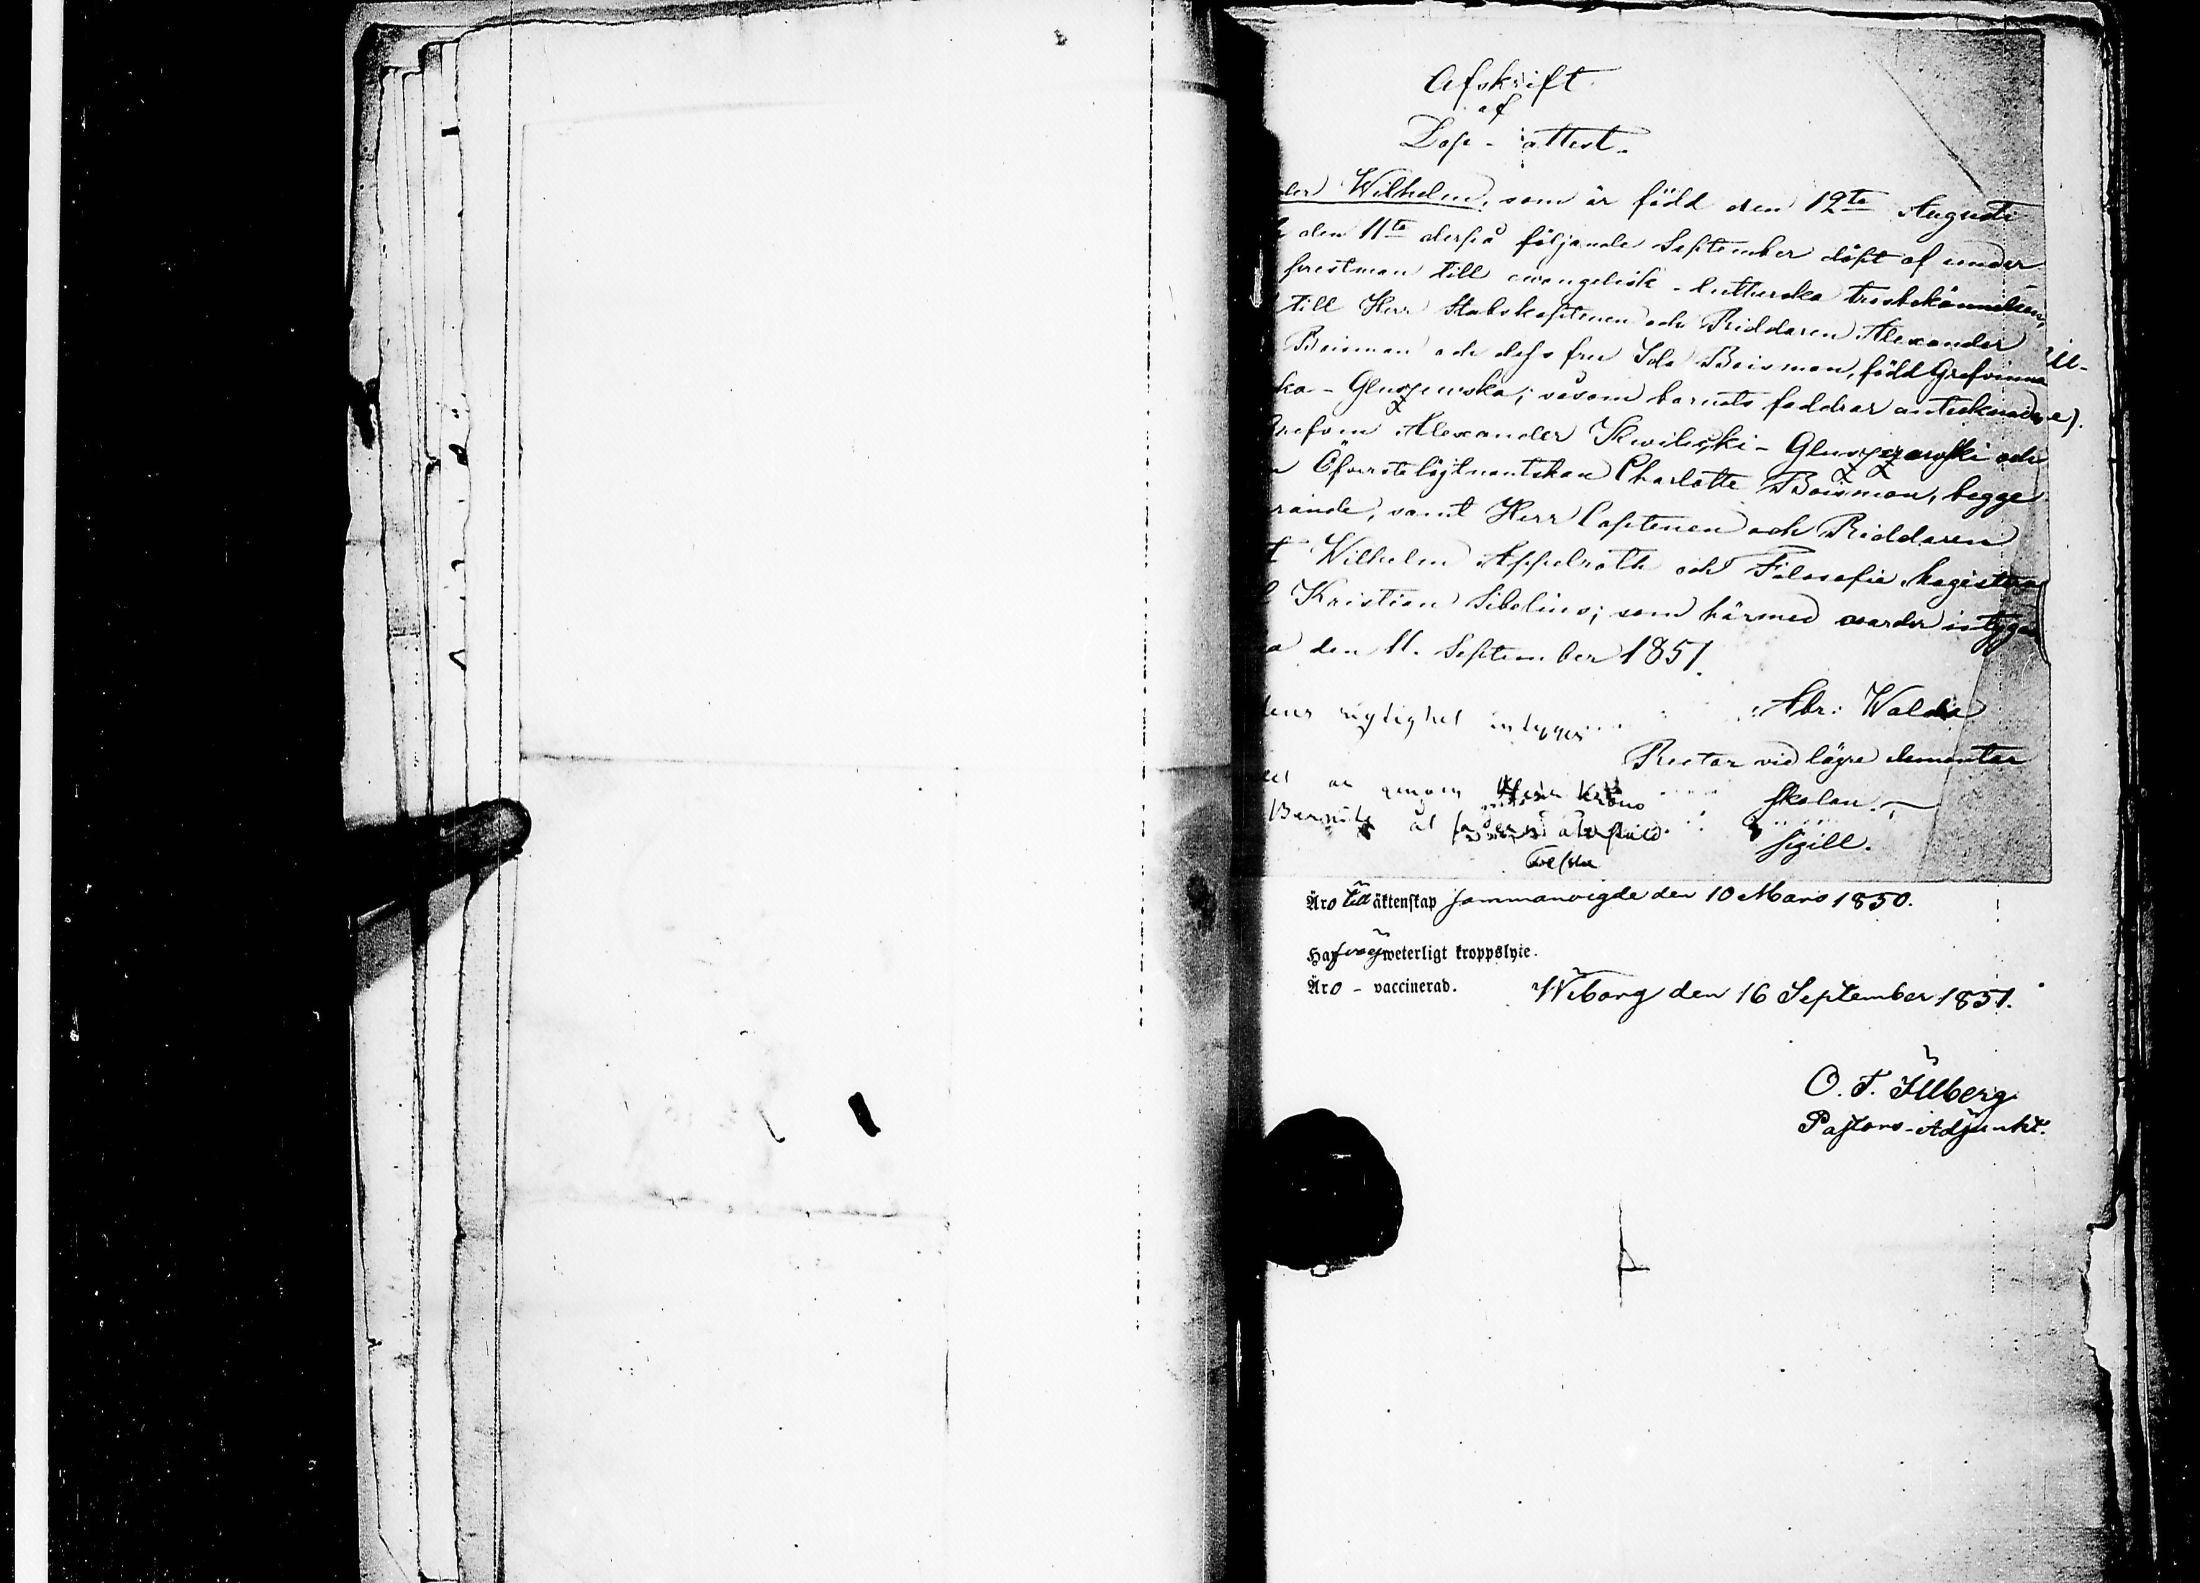 Afskrift
af
Dop-attest.
der Wilhelm, som är född den 12te Augusti
den 11te derpå följande September döpt af under
prestman till evangelisk-lutherska trosbekännelsen,
till Herr Stabskaptenen och Riddaren Alexander
Boisman och dess fru Ida Boisman, född Grefvinna
ka-Gluszewska; såsom barnets faddrar antecknades
Grefven Alexander Kwilecki-Gluszczewski och
Öfverstelöjtnantskan Charlotte Boisman, begge
rande, samt Herr Captenen och Riddaren
Wilhelm Appelroth och Filosofie Magistern
Kristian Sibelius; som härmed varder intygadt
a den 11. September 1851.
Abr: Walder
tens rigtighet intygar
Rector vid lägre elementar
skolan.
Sigill.
är genom
Äro till äktenskap sammanvigde den 10 Mars 1850.
weterligt kroppslyte.
Äro - vaccinerad.
Wiborg den 16 September 1851.
O. F. Illberg
Pastors-Adjunkt.